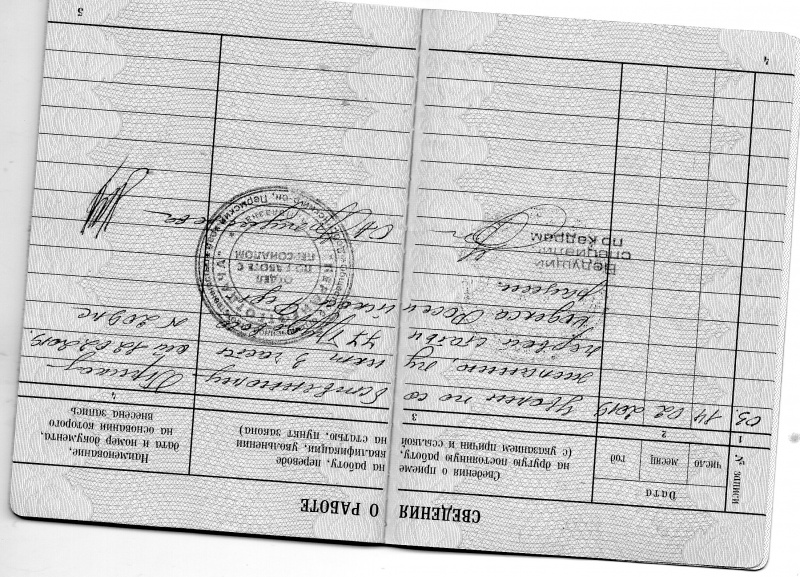 СВЕДЕНИЯ О РАБОТЕ
№ записи
Дата
число
месяц
год
Сведения о приеме
на другую постоянную работу,
(с указанием причин и ссылкой
на работу, переводе
квалификации, увольнении
на статью, пункт закона)
Наименование,
дата и номер документа,
на основании которого
внесена запись
1
2
3
4
03.
14
02
2019
Уволен по со
бственному
Приказ
желанию, пу
нкт 3 части
от 12.02.2019.
первой статьи
77
N 209лс
кодекса Росси
йской Фед
рации.
Ведущий
специалист
по кадрам
ОТДЕЛ
ПО РАБОТЕ С
ПЕРСОНАЛОМ
4
5